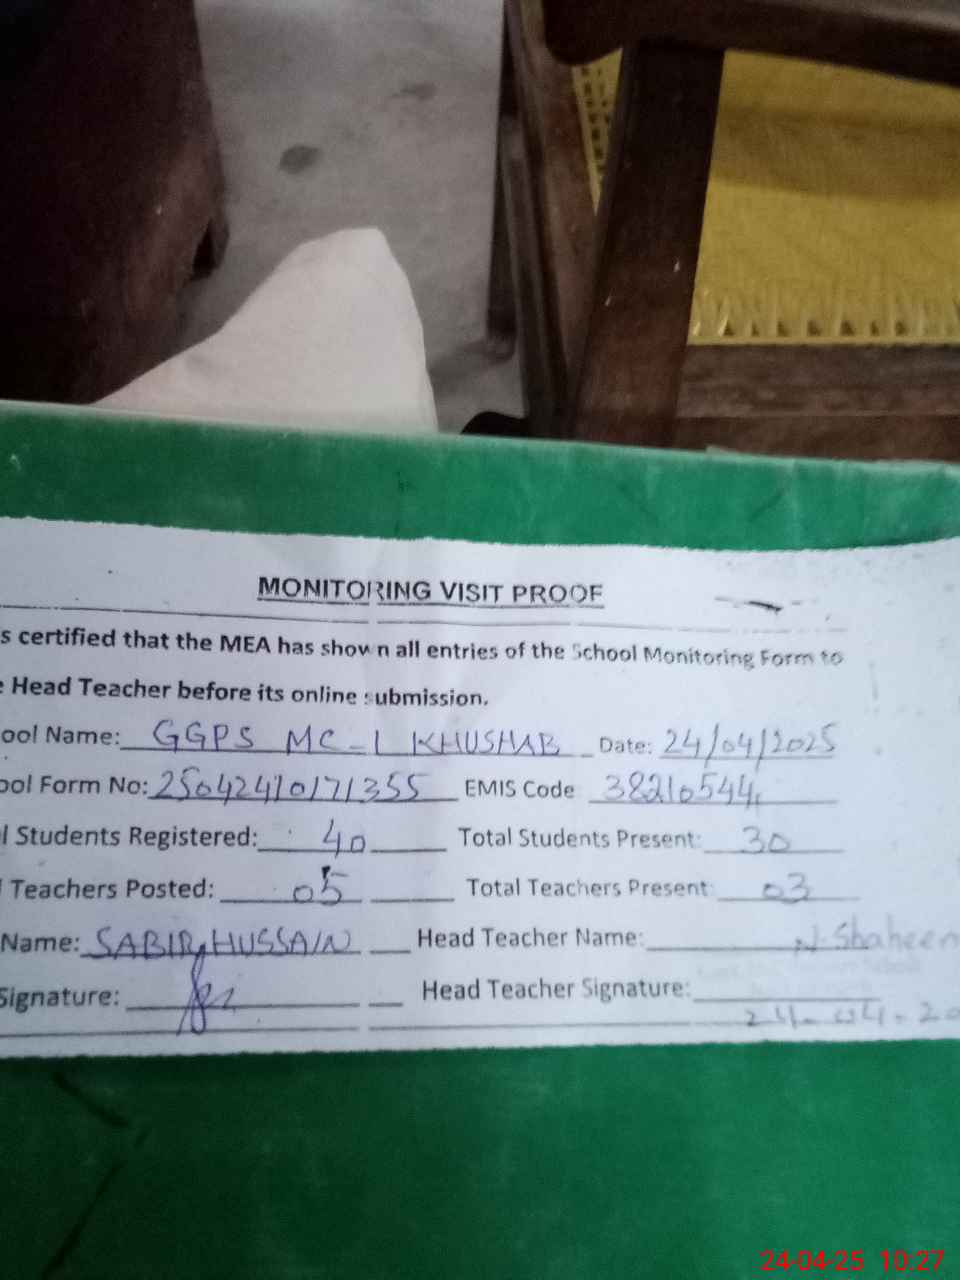 MONITORING VISIT PROOF
s certified that the MEA has shown all entries of the School Monitoring Form to
e Head Teacher before its online submission.
ool Name: GGPS MC-1 KHUSHAB Date: 24/04/2025
ool Form No: 25042410171355 EMIS Code 38210544
l Students Registered: 40 Total Students Present: 30
l Teachers Posted: 05 Total Teachers Present: 03
Name: SABIR HUSSAIN Head Teacher Name: N. Shaheen
Signature: Head Teacher Signature:
24-04-20
24-04-25 10:27